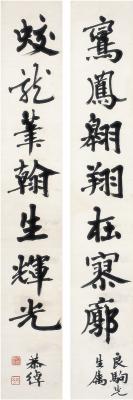 鸞鳳翱翔在寥廓
良駒先生屬
蛟龍筆翰生輝光
恭綽